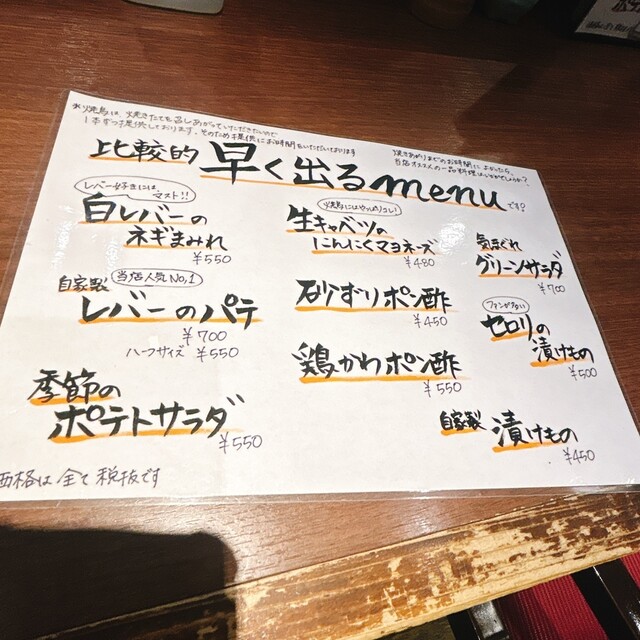 ※焼鳥は、焼きたてを召しあがっていただきたいので
1本ずつ提供しております。そのため提供にお時間をいただいております
焼きあがりまでのお時間に よかったら、
当店オススメの一品料理はいかがでしょうか?
比較的 早く出るmenuです?
レバー好きには、
マスト!!
白レバーの
ネギまみれ
¥550
自家製
当店人気No,1
レバーのパテ
¥700
ハーフサイズ ¥550
季節の
ポテトサラダ
¥550
焼鳥にはやっぱりコレ!
生キャベツの
にんにくマヨネーズ
¥480
砂ずりポン酢
¥450
鶏かわポン酢
¥550
気まぐれ
グリーンサラダ
¥700
ファンが多い
セロリの
漬けもの
¥500
自家製 漬けもの
¥450
価格は全て税抜です